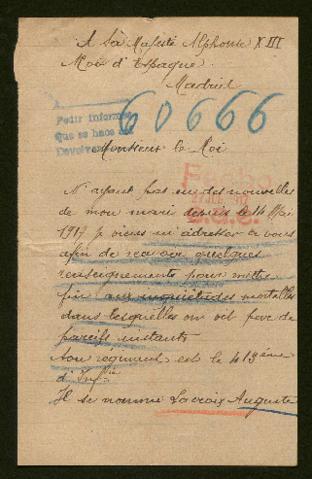 A Sa Majesté Alphonse XIII
Roi d'Espagne
Madrid
60666
Pedir informes
Que se hace
Monsieur le Roi
N'ayant pas eu des nouvelles
de mon mari depuis le 14 Mai
1917 je viens m'adresser a vous
afin de recevoir quelques
renseignements pour mettre
fin aux inquiétudes mortelles
dans lesquelles on vit par de
pareils instants
Son regiment est le 413eme
d'Infie
Il se nomme Lacroix Auguste